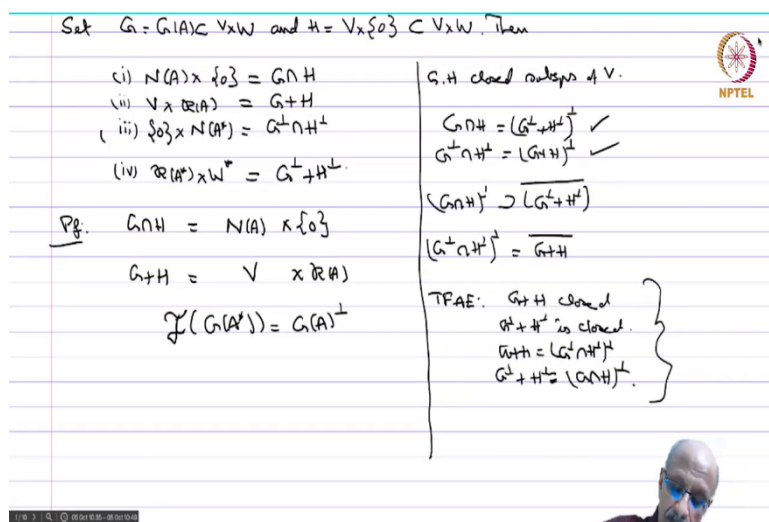 Set G = G(A) ⊂ V×W and H = V×{0} ⊂ V×W. Then
(i) N(A) × {0} = G∩H
(ii) V × R(A) = G+H
(iii) {0} × N(A*) = G^⊥ ∩ H^⊥
(iv) R(A*) × W* = G^⊥ + H^⊥.
Pf: G∩H = N(A) × {0}
G+H = V × R(A)
J(G(A*)) = G(A)^⊥
G, H closed subsps of V.
G∩H = (G^⊥ + H^⊥)^⊥ ✓
G^⊥ ∩ H^⊥ = (G+H)^⊥ ✓
(G∩H)^⊥ ⊃ \overline{(G^⊥ + H^⊥)}
(G^⊥ ∩ H^⊥)^⊥ = \overline{G+H}
TFAE: G+H closed
G^⊥ + H^⊥ is closed.
G+H = (G^⊥ ∩ H^⊥)^⊥
G^⊥ + H^⊥ = (G∩H)^⊥.
NPTEL